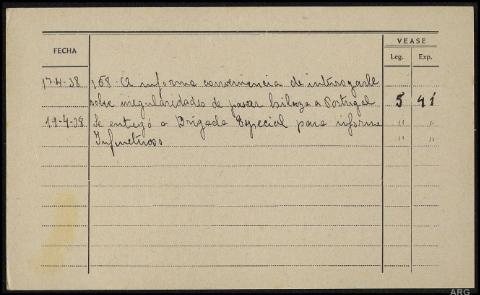 VEASE
FECHA
Leg. Exp.
17-4-38 168-A informa conveniencia de interrogarle
sobre irregularidades de pasar a Portugal 5 41
19-4-38 Se entregó a Brigada Especial para informe " "
Infructuoso " "
ARG